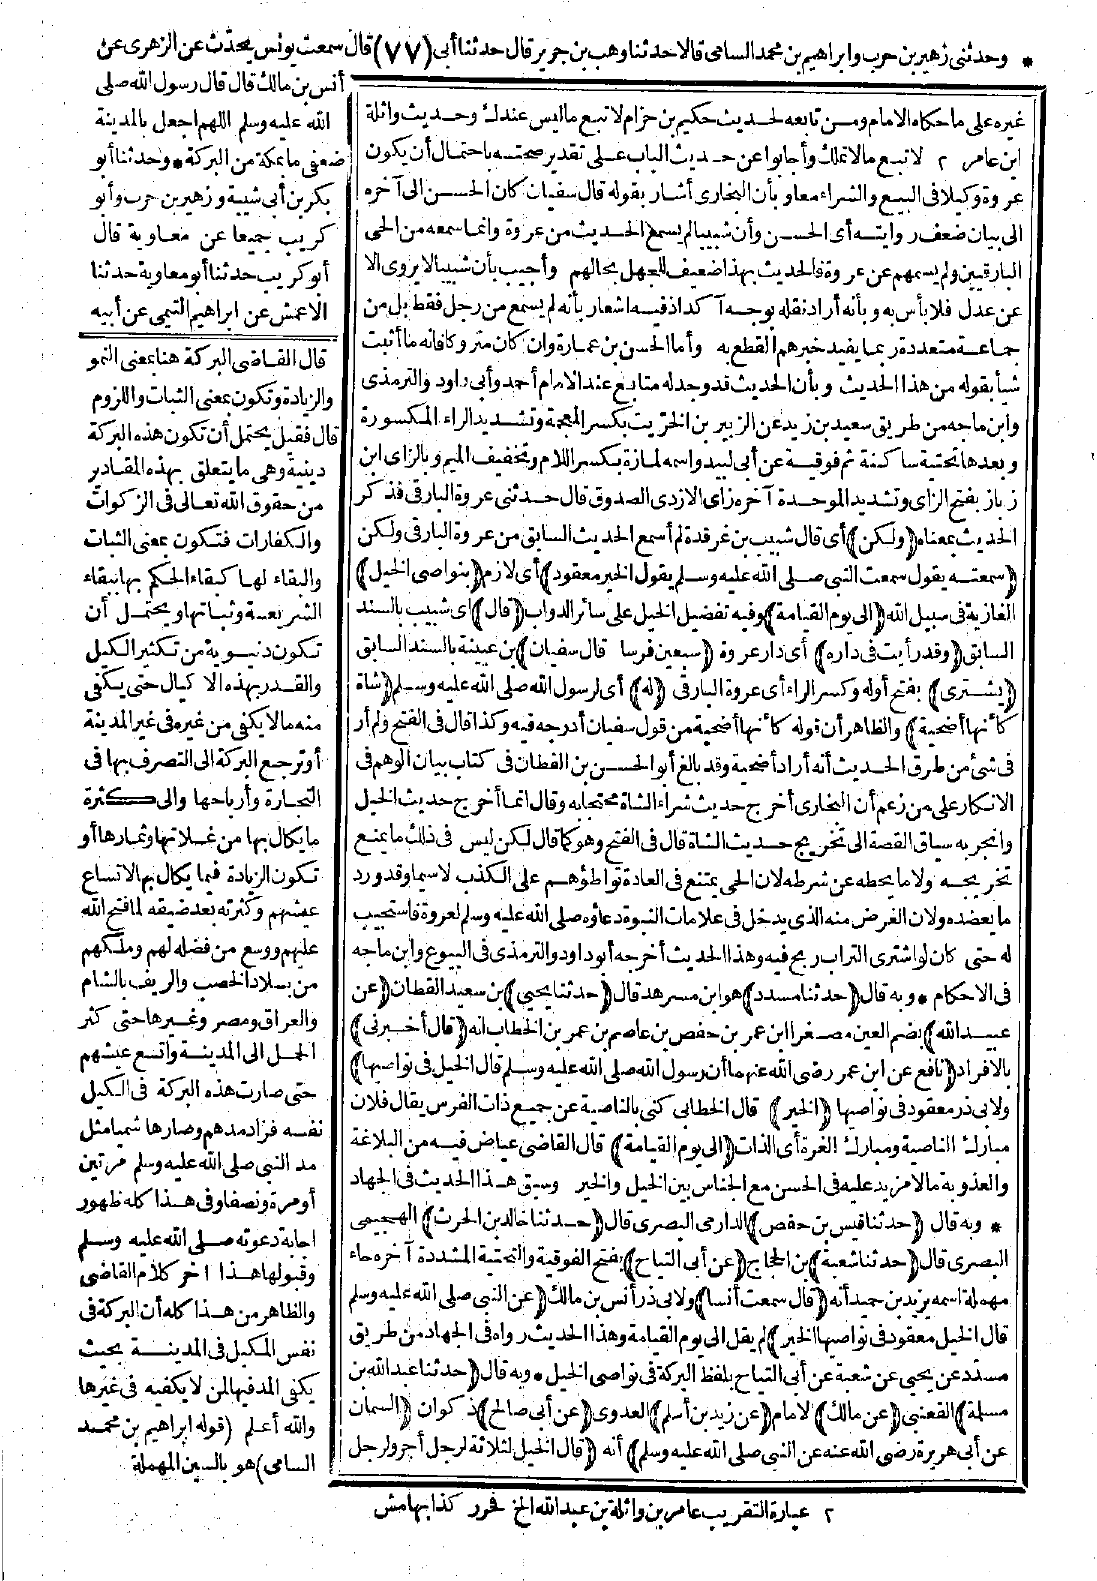 * وحدثني زهير بن حرب وابراهيم بن محمد السامى قالا حدثنا وهب بن جرير قال حدثنا أبى (٧٧) قال سمعت يونس يحدث عن الزهرى عن
أنس بن مالك قال قال رسول الله صلى
الله عليه وسلم اللهم اجعل بالمدينة
ضعفي ما بمكة من البركة * وحدثنا أبو
بكر بن أبى شيبة وزهير بن حرب وأبو
كريب جميعا عن معاوية قال
أبو كريب حدثنا أبو معاوية حدثنا
الاعمش عن ابراهيم التيمى عن أبيه
قال القاضى البركة هنا بمعنى النمو
والزيادة وتكون بمعنى الثبات واللزوم
قال فقيل يحتمل أن تكون هذه البركة
دينية وهى ما يتعلق بهذه المقادير
من حقوق الله تعالى فى الزكوات
والكفارات فتكون بمعنى الثبات
والبقاء لها كبقاء الحكم بها ببقاء
الشريعة وثباتها ويحتمل أن
تكون دنيوية من تكثير الكيل
والقدر بهذه الاكيال حتى يكفى
منه ما لا يكفى من غيره فى غير المدينة
أو ترجع البركة الى التصرف بها فى
التجارة وأرباحها والى كثرة
ما يكال بها من غلاتها وثمارها أو
تكون الزيادة فيما يكال بها لاتساع
عيشهم وكثرته بعد ضيقه لما فتح الله
عليهم ووسع من فضله لهم وملكهم
من بلاد الخصب والريف بالشام
والعراق ومصر وغيرها حتى كثر
الحمل الى المدينة واتسع عيشهم
حتى صارت هذه البركة فى الكيل
نفسه فزاد مدهم وصار هاشميا مثل
مد النبى صلى الله عليه وسلم مرتين
أو مرة ونصفا وفى هذا كله ظهور
اجابة دعوته صلى الله عليه وسلم
وقبولها هذا آخر كلام القاضى
والظاهر من هذا كله أن البركة فى
نفس المكيل فى المدينة بحيث
يكفى المد فيها لمن لا يكفيه فى غيرها
والله أعلم (قوله ابراهيم بن محمد
السامى) هو بالسين المهملة
غيره على ما حكاه الامام ومن تابعه لحديث حكيم بن حزام لا تبع ما ليس عندك وحديث واثلة
ابن عامر ٢ لا تبع ما لا تملك وأجابوا عن حديث الباب على تقدير صحته باحتمال أن يكون
عروة وكيلا فى البيع والشراء معا وبأن البخارى أشار بقوله قال سفيان كان الحسن الى آخره
الى بيان ضعف روايته أى الحسن وأن شبيبا لم يسمع الحديث من عروة وانما سمعه من الحى
البارقيين ولم يسمهم عن عروة فالحديث بهذا ضعيف للجهل بحالهم وأجيب بأن شبيبا لا يروى الا
عن عدل فلا بأس به وبأنه أراد نقله بوجه آكد اذ فيه اشعار بأنه لم يسمع من رجل فقط بل من
جماعة متعددة ربما يفيد خبرهم القطع به وأما الحسن بن عمارة وان كان متروكا فانه ما أثبت
شيأ بقوله من هذا الحديث وبأن الحديث قد وجد له متابع عند الامام أحمد وأبى داود والترمذى
وابن ماجه من طريق سعيد بن زيد عن الزبير بن الخريت بكسر المعجمة وتشديد الراء المكسورة
وبعدها تحتية ساكنة ثم فوقية عن أبى لبيد واسمه لمازة بكسر اللام وتخفيف الميم وبالزاى ابن
زباز بفتح الزاى وتشديد الموحدة آخره زاى الازدى الصدوق قال حدثنى عروة البارقى فذكر
الحديث بمعناه (ولكن) أى قال شبيب بن غرقدة لم أسمع الحديث السابق من عروة البارقى ولكن
(سمعته يقول سمعت النبى صلى الله عليه وسلم يقول الخير معقود) أى لازم (بنواصى الخيل)
الغازية فى سبيل الله (الى يوم القيامة) وفيه تفضيل الخيل على سائر الدواب (قال) أى شبيب بالسند
السابق (وقد رأيت فى داره) أى دار عروة (سبعين فرسا قال سفيان) بن عيينة بالسند السابق
(يشترى) بفتح أوله وكسر الراء أى عروة البارقى (له) أى لرسول الله صلى الله عليه وسلم (شاة
كأنها أضحية) والظاهر أن قوله كأنها أضحية من قول سفيان أدرجه فيه وكذا قال فى الفتح ولم أر
فى شئ من طرق الحديث أنه أراد أضحية وقد بالغ أبو الحسن بن القطان فى كتاب بيان الوهم فى
الانكار على من زعم أن البخارى أخرج حديث شراء الشاة محتجا به وقال انما أخرج حديث الخيل
وانجر به سياق القصة الى تخريج حديث الشاة قال فى الفتح وهو كما قال لكن ليس فى ذلك ما يمنع
تخريجه ولا ما يحطه عن شرطه لان الحى يمتنع فى العادة تواطؤهم على الكذب لا سيما وقد ورد
ما يعضده ولان الغرض منه الذى يدخل فى علامات النبوة دعاؤه صلى الله عليه وسلم لعروة فاستجيب
له حتى كان لو اشترى التراب ربح فيه وهذا الحديث أخرجه أبو داود والترمذى فى البيوع وابن ماجه
فى الاحكام * وبه قال (حدثنا مسدد) هو ابن مسرهد قال (حدثنا يحيى) بن سعيد القطان (عن
عبيد الله) بضم العين مصغرا ابن عمر بن حفص بن عاصم بن عمر بن الخطاب انه (قال أخبرنى)
بالافراد (نافع عن ابن عمر رضى الله عنهما أن رسول الله صلى الله عليه وسلم قال الخيل فى نواصيها)
ولابى ذر معقود فى نواصيها (الخير) قال الخطابى كنى بالناصية عن جميع ذات الفرس يقال فلان
مبارك الناصية ومبارك الغرة أى الذات (الى يوم القيامة) قال القاضى عياض فيه من البلاغة
والعذوبة ما لا مزيد عليه فى الحسن مع الجناس بين الخيل والخير وسبق هذا الحديث فى الجهاد
* وبه قال (حدثنا قيس بن حفص) الدارمى البصرى قال (حدثنا خالد بن الحرث) الهجيمى
البصرى قال (حدثنا شعبة) بن الحجاج (عن أبى التياح) بفتح الفوقية والتحتية المشددة آخره حاء
مهملة اسمه يزيد بن حميد أنه (قال سمعت أنسا) ولابى ذر أنس بن مالك (عن النبى صلى الله عليه وسلم
قال الخيل معقود فى نواصيها الخير) لم يقل الى يوم القيامة وهذا الحديث رواه فى الجهاد من طريق
مسدد عن يحيى عن شعبة عن أبى التياح بلفظ البركة فى نواصى الخيل * وبه قال (حدثنا عبد الله بن
مسلمة) القعنبى (عن مالك) الامام (عن زيد بن أسلم) العدوى (عن أبى صالح) ذكوان (السمان
عن أبى هريرة رضى الله عنه عن النبى صلى الله عليه وسلم) أنه (قال الخيل لثلاثة لرجل أجر ولرجل
٢ عبارة التقريب عامر بن واثلة بن عبد الله الخ فحرر كذا بهامش